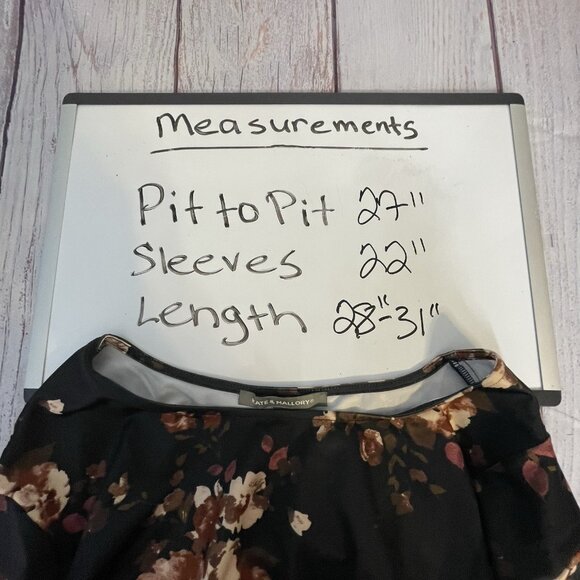 Measurements
Pit to Pit 27"
Sleeves 22"
Length 28"-31"
& MALLORY